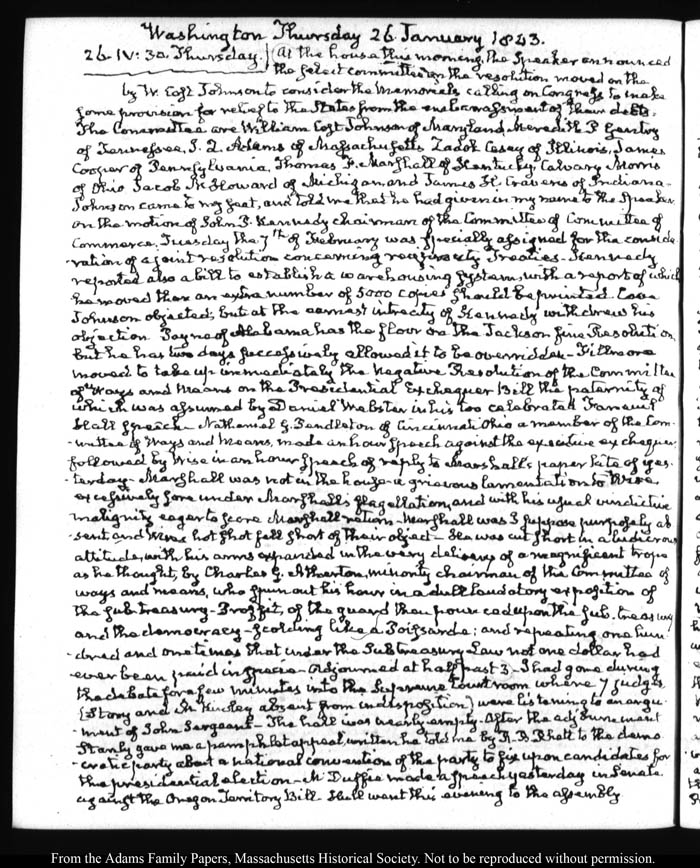 Washington Thursday 26 January 1843.
26. IV: 30. Thursday. At the house this morning, the Speaker announced
the select committee on the resolution moved on the
by W. Cost Johnson to consider the Memorials calling on Congress to make
some provision for relief to the States from the embarrassment of their debts.
The Committee are William Cost Johnson of Maryland, Meredith P. Gentry
of Tennessee, J. Q. Adams of Massachusetts, Zadok Casey of Illinois, James
Cooper of Pennsylvania, Thomas F. Marshall of Kentucky, Calvary Morris
of Ohio Jacob M. Howard of Michigan, and James H. Cravens of Indiana—
Johnson came to my seat, and told me that he had given in my name to the Speaker
on the motion of John P. Kennedy chairman of the Committee of Committee of
Commerce, Tuesday the 7th of February was specially assigned for the conside
-ration of a joint resolution concerning reciprocity Treaties— Kennedy
reported also a bill to establish a warehousing system, with a report of which
he moved that an extra number of 5000 copies should be printed. Cave
Johnson objected, but at the earnest intreaty of Kennedy withdrew his
objection. Payne of Alabama has the floor on the Jackson fine Resolution,
but he has two days successively allowed it to be overridden— Fillmore
moved to take up immediately the negative Resolution of the Committee
of Ways and Means on the Presidential Exchequer Bill the paternity of
which was assumed by Daniel Webster in his too celebrated Faneuil
Hall speech— Nathaniel G. Pendleton of Cincinnati Ohio a member of the Com-
-mittee of Ways and Means, made an hour speech against the executive exchequer
followed by Wise in an hour speech of reply to Marshall's paper kite of yes-
-terday— Marshall was not in the house— a grievous lamentation to Wise
excessively sore under Marshall's flagellation, and with his usual vindictive
malignity eager to score Marshall return— Marshall was I suppose purposely ab
-sent and Wise's hot shot fell short of their object— He was cut short in a ludicrous
attitude, with his arms expanded in the very delivery of a magnificent trope
as he thought, by Charles G. Atherton, minority chairman of the Committee of
ways and means, who spun out his hour in a dull laudatory exposition of
the subtreasury— Proffit, of the guard then pour caded upon the sub-treasury
and the democracy— scolding like a Poissarde; and repeating one hun
-dred and one times that under the Subtreasury Law not one dollar had
ever been paid in specie— Adjourned at half past 3— I had gone during
the debate for a few minutes into the Supreme Court room where 7 judges
(Story and McKinley absent from indisposition) were listening to an argu
-ment of John Sergeant— The hall was nearly empty. After the adjournment
Stanly gave me a pamphlet appeal, written he told me by R. B. Rhett to the demo
-cratic party about a national convention of the party to fix upon candidates for
the presidential election— McDuffie made a speech yesterday in Senate
against the Oregon Territory Bill. Hull went this evening to the assembly
From the Adams Family Papers, Massachusetts Historical Society. Not to be reproduced without permission.